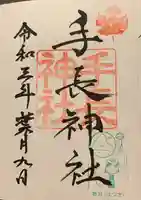 手長神社
手長
神社
令和三年葉月九日